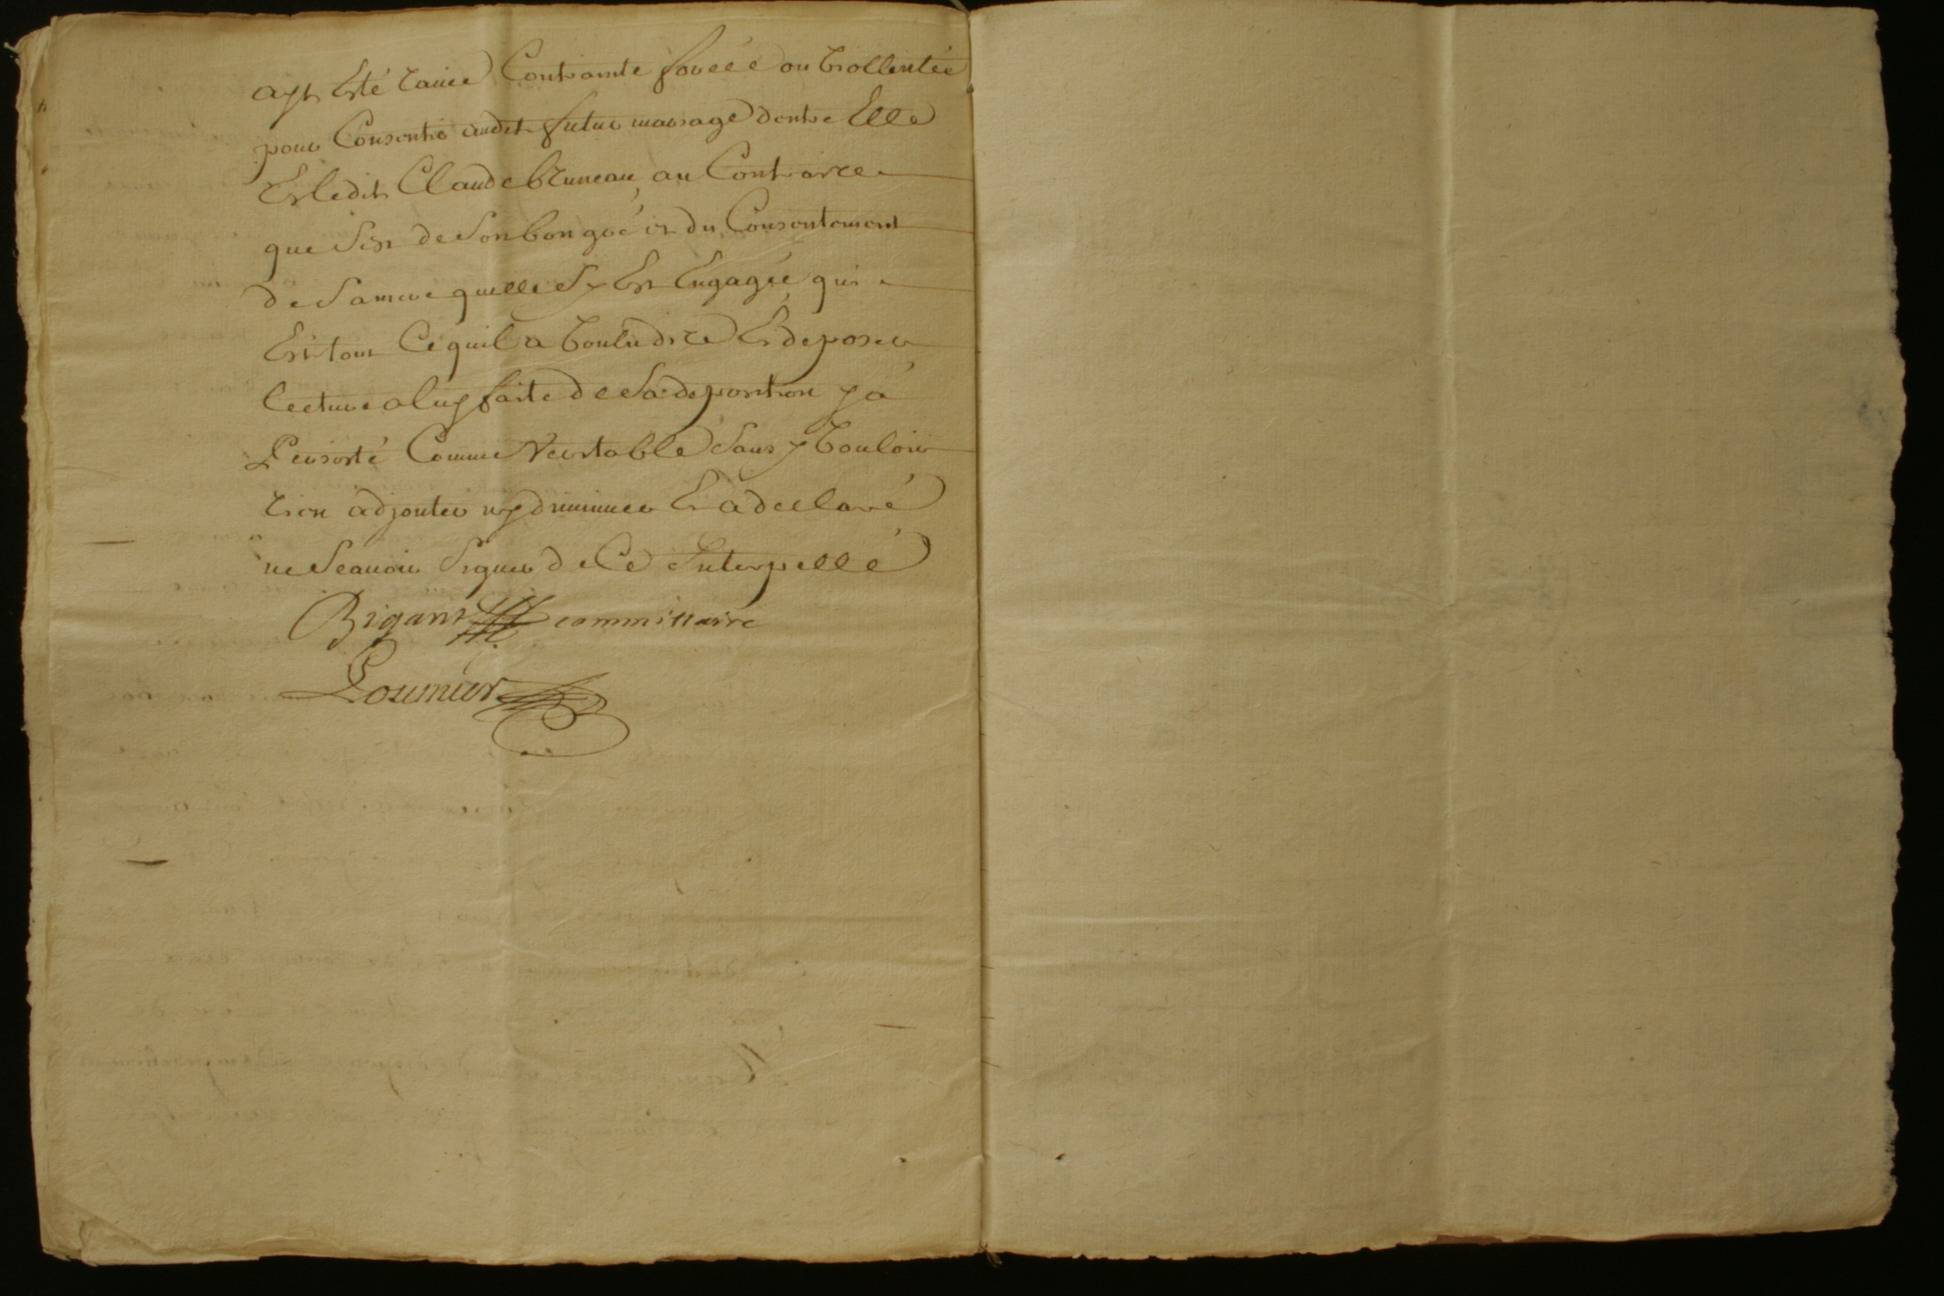 ayt Esté Contrainte forcée ou Viollentée
pour Consentir audit futur mariage dentre Elle
Et ledit Claude bruneau au Contraire
que sest de son bon gré et du Consentement
de sa mere quelle sy Est Engagée qui
Est tout Ce quil a voulu dire Et deposer
lecture a luy faite de sa deposition y a
Persisté Comme veritable sans y vouloir
rien adjouter ny diminuer Et a declaré
ne scavoir signer de Ce Interpellé
Bigant commissaire